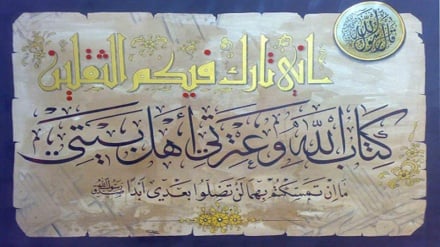 قال رسول الله
انی تارك فيكم الثقلين
كتاب الله وعترتي أهل بيتي
ما إن تمسكتم بهما لن تضلوا بعدي أبدا